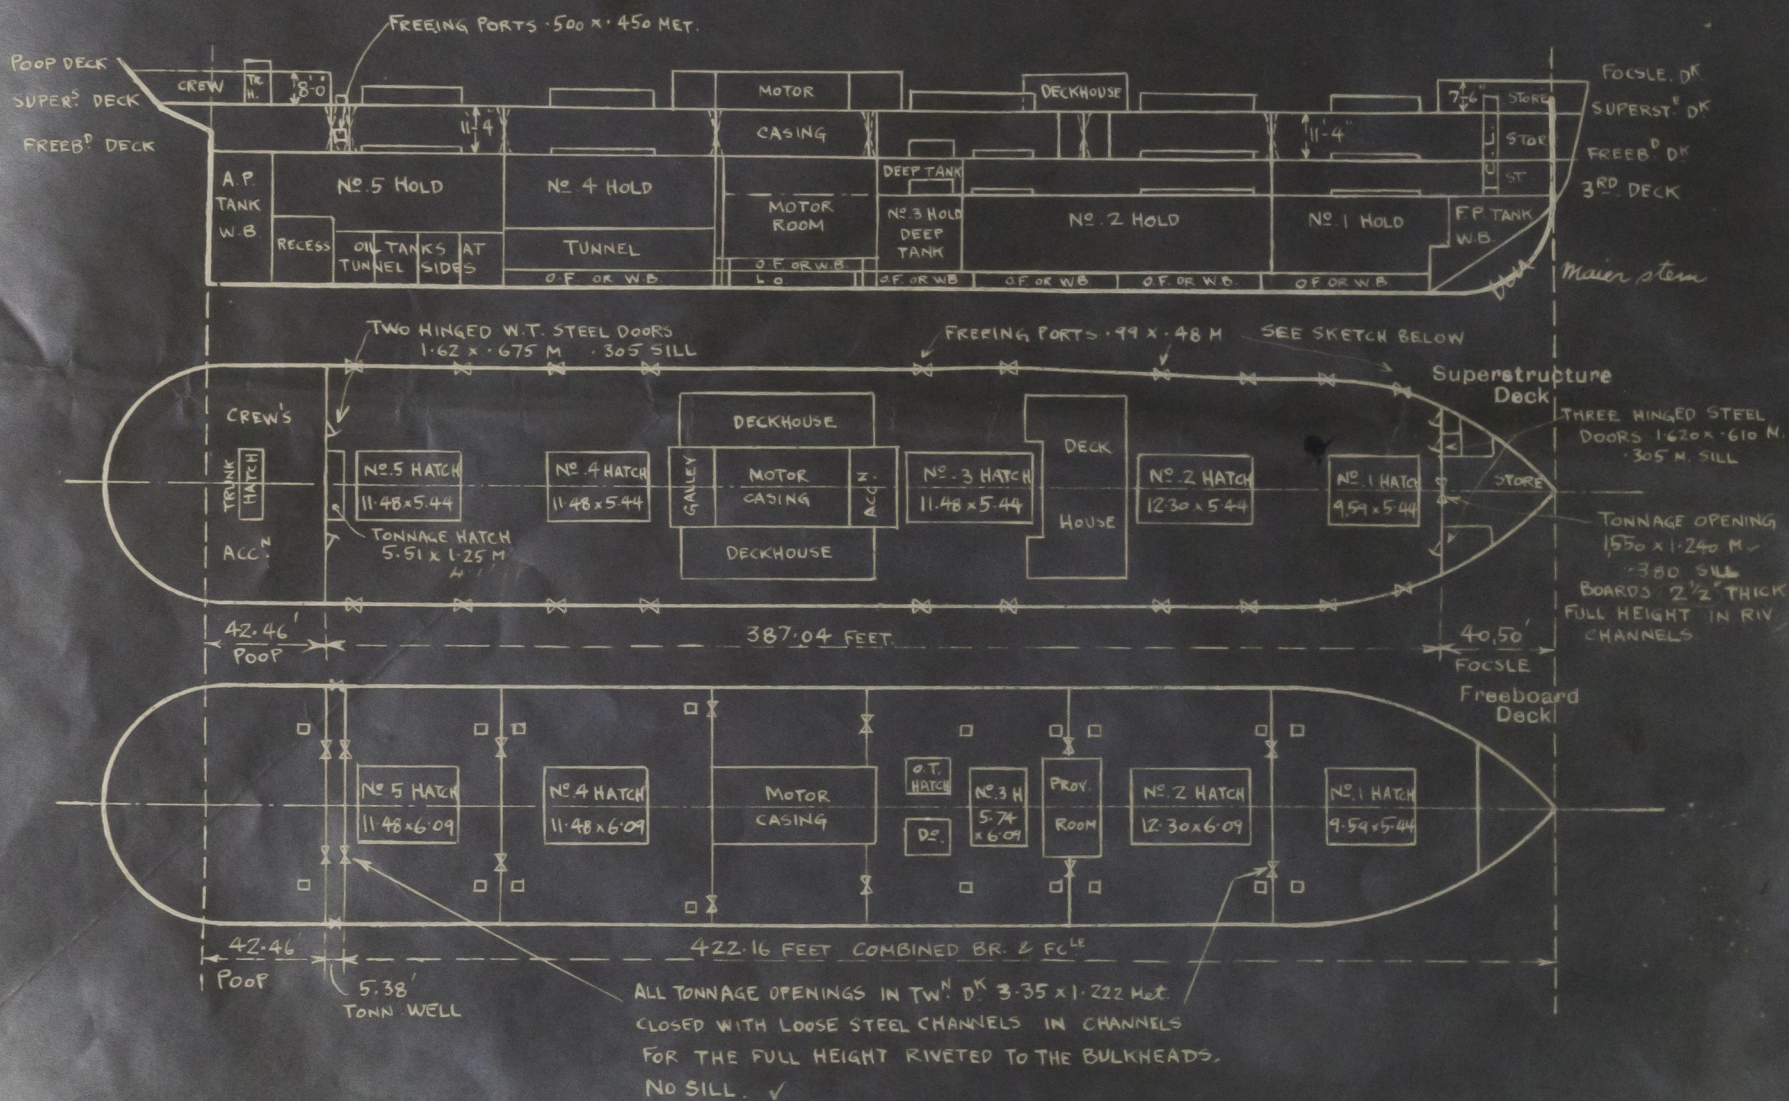 FREEING PORTS .500 x .450 MET.
POOP DECK
SUPERS DECK
FREEBD DECK
CREW
TR.
H.
8'-0"
11'-4"
MOTOR
CASING
DECKHOUSE
11'-4"
7'-6"
STORE
STOR
ST
FOCSLE. DK
SUPERSTE DK
FREEBD DK
3RD DECK
A.P.
TANK
W.B
RECESS
No. 5 HOLD
OIL TANKS AT
TUNNEL SIDES
No. 4 HOLD
TUNNEL
O.F. OR W.B.
MOTOR
ROOM
O.F. OR W.B.
L O
DEEP TANK
No. 3 HOLD
DEEP
TANK
O.F. OR WB
No. 2 HOLD
O.F. OR W.B.
O.F. OR W.B.
No. 1 HOLD
O F OR W.B.
F.P. TANK
W.B.
Maier stem
TWO HINGED W.T. STEEL DOORS
1.62 x .675 M .305 SILL
FREEING PORTS .99 x .48 M
SEE SKETCH BELOW
Superstructure
Deck
CREW'S
TRUNK
HATCH
ACCN
No. 5 HATCH
11.48 x 5.44
TONNAGE HATCH
5.51 x 1.25 M
No. 4 HATCH
11.48 x 5.44
DECKHOUSE
GALLEY
MOTOR
CASING
ACCN.
DECKHOUSE
No. 3 HATCH
11.48 x 5.44
DECK
HOUSE
No. 2 HATCH
12.30 x 5.44
No. 1 HATCH
9.59 x 5.44
STORE
THREE HINGED STEEL
DOORS 1.620 x .610 M.
.305 M. SILL
TONNAGE OPENING
1550 x 1.240 M
.380 SILL
BOARDS 2 1/2" THICK
FULL HEIGHT IN RIV
CHANNELS
42.46'
POOP
387.04 FEET.
40,50'
FOCSLE
Freeboard
Deck
No. 5 HATCH
11.48 x 6.09
No. 4 HATCH
11.48 x 6.09
MOTOR
CASING
O.T.
HATCH
Do.
No. 3 H
5.74
x 6.09
PROV.
ROOM
No. 2 HATCH
12.30 x 6.09
No. 1 HATCH
9.59 x 5.44
42.46
POOP
5.38'
TONN WELL
422.16 FEET COMBINED BR. & FCLE
ALL TONNAGE OPENINGS IN TWN DK 3.35 x 1.222 Met.
CLOSED WITH LOOSE STEEL CHANNELS IN CHANNELS
FOR THE FULL HEIGHT RIVETED TO THE BULKHEADS.
NO SILL. ✓